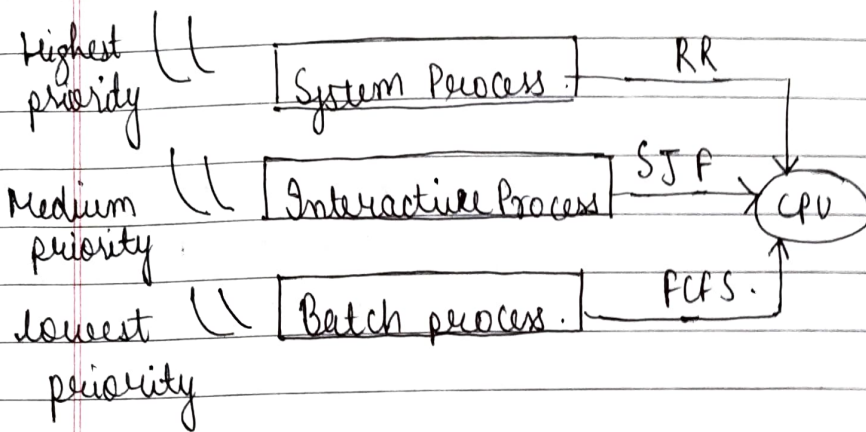 Highest
priority
System Process.
RR
Medium
priority
Interactive Process
SJF
CPU
lowest
priority
Batch process.
FCFS.